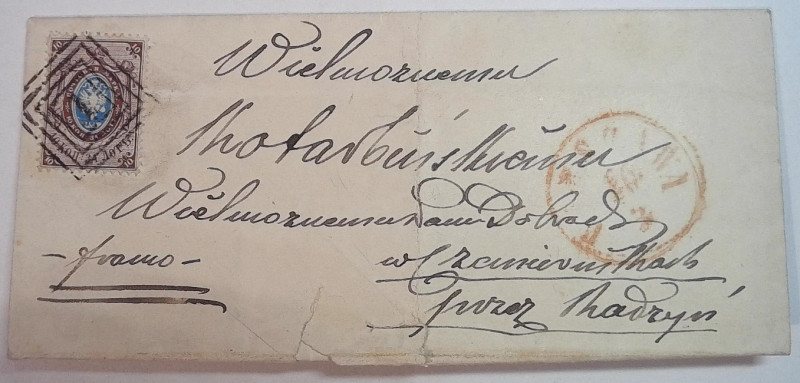 Wielmożnemu
Kotarbińskiemu
Wielmożnemu Panu Dobrodz
- franco -
w Czemiernikach
przez Radzyń
10
10
10
10